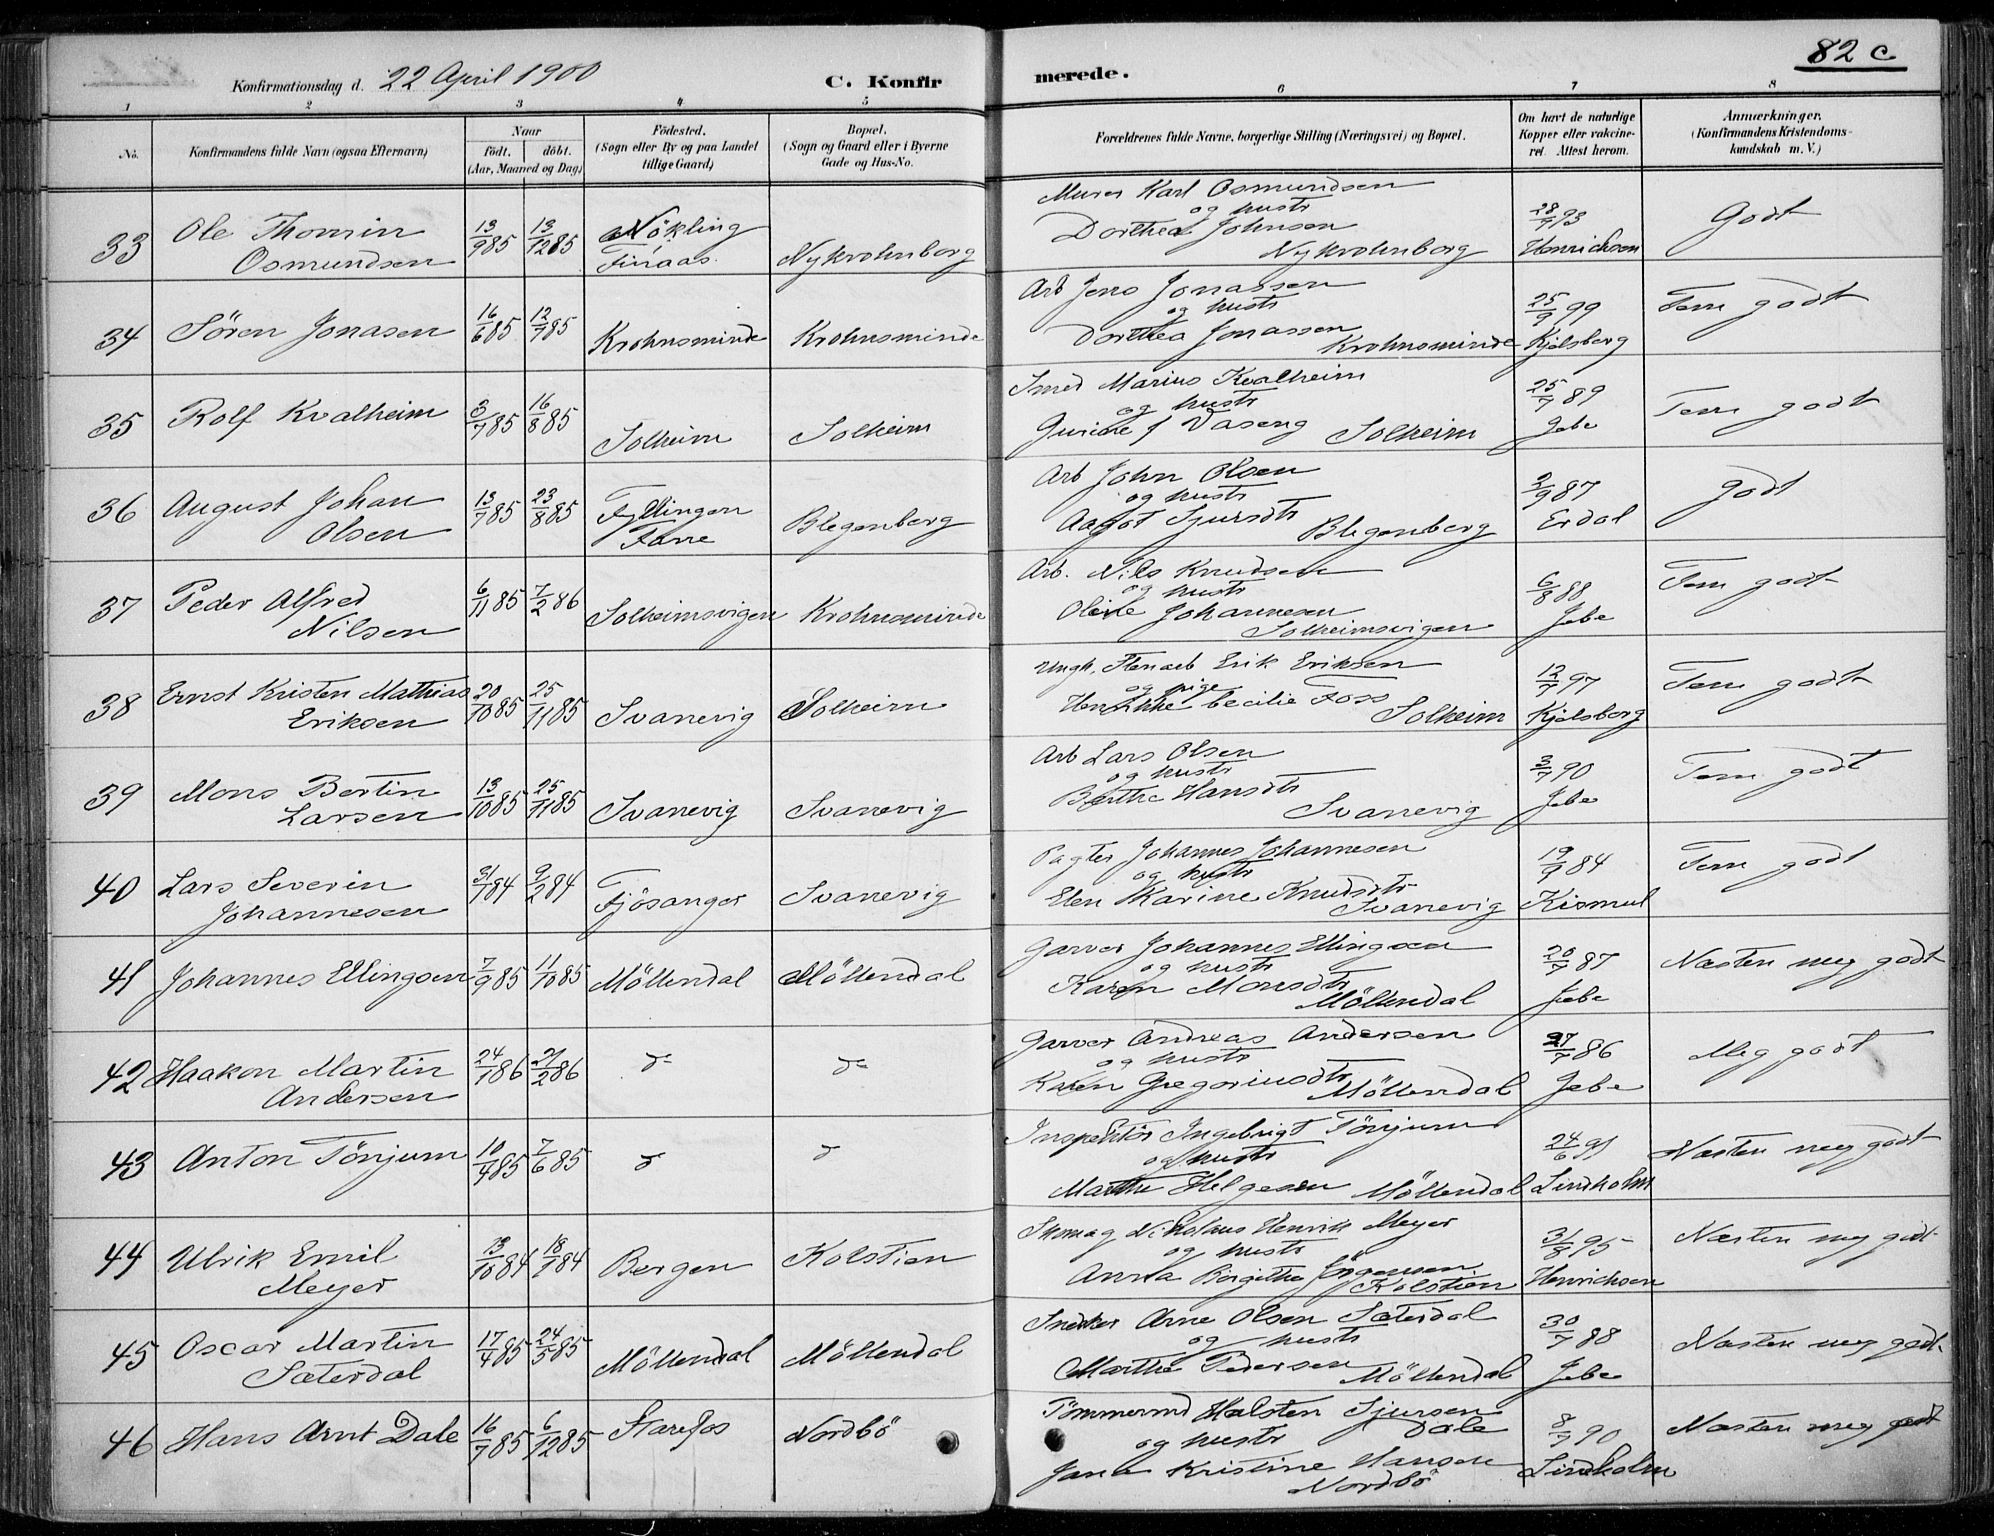 82 c
Konfirmationsdag d. 22 April 1900
C. Konfir
merede.
1 2 3 4 5 6 7 8
No.
Konfirmandens fulde Navn (ogsaa Efternavn)
Naar
födt. döbt.
(Aar, Maaned og Dag)
Födested.
(Sogn eller By og paa Landet
tillige Gaard)
Bopæl.
(Sogn og Gaard eller i Byerne
Gade og Hus-No.
Forældrenes fulde Navne, borgerlige Stilling (Næringsvei) og Bopæl.
Om havt de naturlige
Kopper eller vakcine-
ret. Attest herom.
Anmærkninger.
(Konfirmandens Kristendoms-
kundskab m. V.)
33 Ole Thomin
Osmundsen
13/9 85 13/12 85
Nökling
Finaas.
Nykrohnborg
Murer Karl Osmundsen
og hustr
Dorthea Johnsen
Nykrohnborg
28/9 93
Henrichsen
Godt
34 Sören Jonasen
16/6 85 12/7 85
Krohnsminde
Krohnsminde
Arb Jens Jonassen
og hustr
Dorthea Jonassen
Krohnsminde
25/9 99
Kjelsberg
Tem godt
35 Rolf Kvalheim
3/7 85 16/8 85
Solheim
Solheim
Smed Marius Kvalheim
og hustr
Gurine f Vaseng Solheim
25/7 89
Jebe
Tem godt
36 August Johan
Olsen
13/7 85 23/8 85
Fyllingen
Fane
Blegenberg
Arb John Olsen
og hustr
Aagot Sjursdtr Blegenberg
2/9 87
Erdal
Godt
37 Peder Alfred
Nilsen
6/11 85 7/2 86
Solheimsvigen
Krohnsminde
Arb. Nils Knudsen
og hustr
Oline Johannesen
Solheimsvigen
6/8 88
Jebe
Tem godt
38 Ernst Kristen Mathias
Eriksen
20/10 85 25/11 85
Svanevig
Solheim
Ungk. Stenarb Erik Eriksen
og pige
Henrikke Cecilie Foss
Solheim
12/7 97
Kjelsberg
Tem godt
39 Mons Bertin
Larsen
13/10 85 25/11 85
Svanevig
Svanevig
Arb Lars Olsen
og hustr
Berthe Hansdtr
Svanevig
3/7 90
Jebe
Tem godt
40 Lars Severin
Johannesen
31/1 84 9/2 84
Fjösanger
Svanevig
Pagter Johannes Johannesen
og hustr
Elen Karine Knudsdtr
Svanevig
19/9 84
Kismul
Tem godt
41 Johannes Ellingsen
7/9 85 11/10 85
Möllendal
Möllendal
Garver Johannes Ellingsen
og hustr
Karen Monsdtr
Möllendal
20/7 87
Jebe
Næsten meg godt
42 Haakon Martin
Andersen
24/1 86 21/2 86
d°
d°
Garver Andreas Andersen
og hustr
Karen Gregoriusdtr
Möllendal
27/7 86
Jebe
Meg godt
43 Anton Tönjum
10/4 85 7/6 85
d°
d°
Inspektör Ingebrigt Tönjum
og hustr
Marthe Helgesen Möllendal
24/6 91
Lindholm
Næsten meg godt
44 Ulrik Emil
Meyer
13/10 84
Bergen
Kolstien
Skomag Nikolaus Henrik Meyer
og hustr
Anna Birgithe Jörgensen
Kolstien
31/8 95
Henrichsen
Næsten meg godt
45 Oscar Martin
Sæterdal
17/4 85 24/5 85
Möllendal
Möllendal
Snedker Arne Olsen Sæterdal
og hustr
Marthe Pedersen
Möllendal
30/7 88
Jebe
Næsten meg godt
46 Hans Arnt Dale
16/7 85 6/12 85
Starefos
Nordbö
Tömmermd Halsten Sjursen
Dale
og hustr
Jana Kristine Hansen
Nordbö
8/7 90
Lindholm
Næsten meg godt